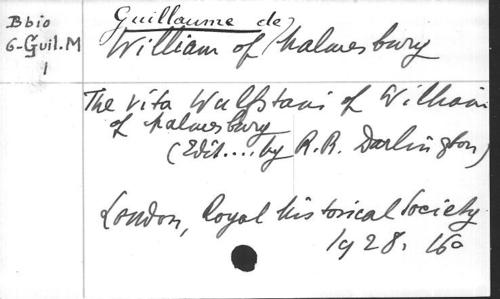 Bbio
6-Guil.M
1
Guillaume de)
William of Malmesbury
The Vita Wulfstani of William
of Malmesbury
(Edit.... by R.R. Darlington)
London, Royal historical Society
1928. 16°